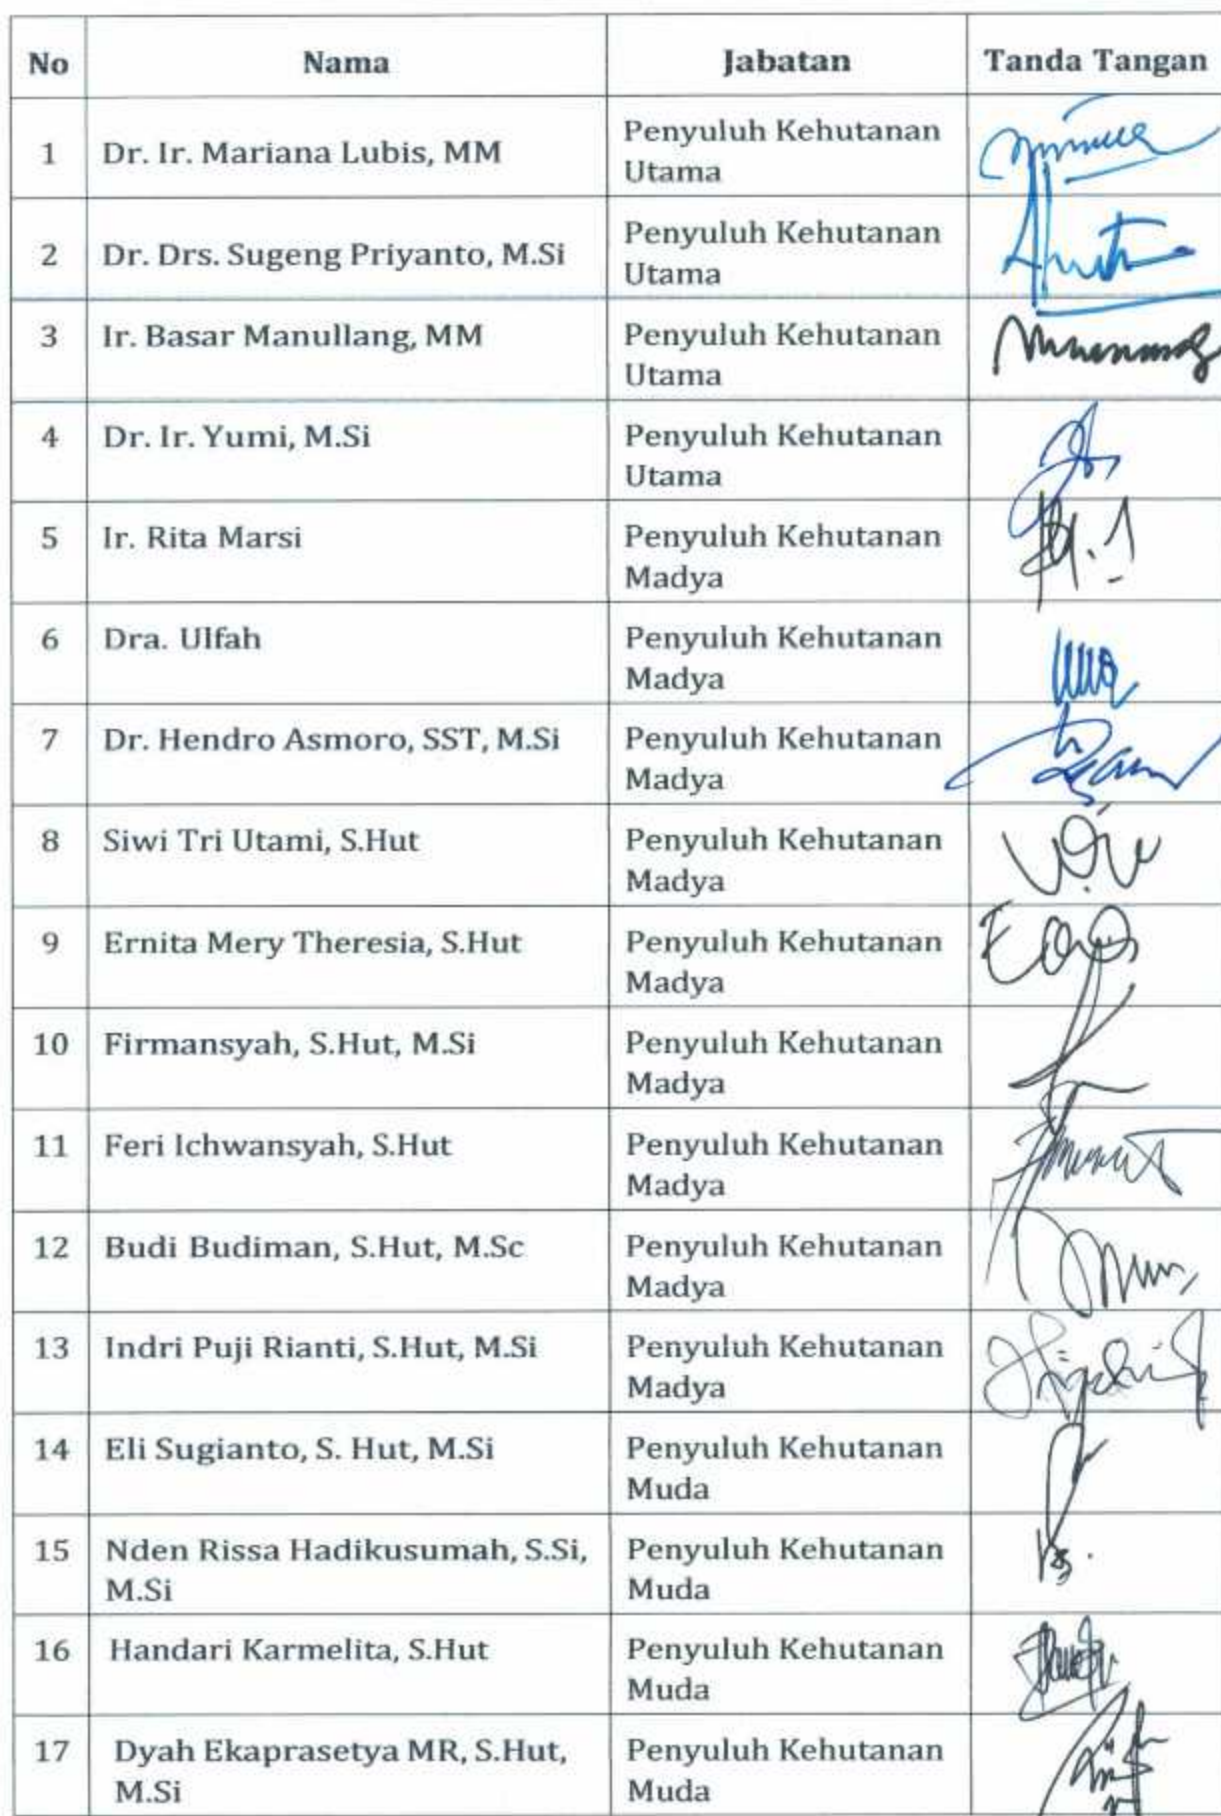 No Nama Jabatan Tanda Tangan
1 Dr. Ir. Mariana Lubis, MM Penyuluh Kehutanan
Utama
2 Dr. Drs. Sugeng Priyanto, M.Si Penyuluh Kehutanan
Utama
3 Ir. Basar Manullang, MM Penyuluh Kehutanan
Utama
4 Dr. Ir. Yumi, M.Si Penyuluh Kehutanan
Utama
5 Ir. Rita Marsi Penyuluh Kehutanan
Madya
6 Dra. Ulfah Penyuluh Kehutanan
Madya
7 Dr. Hendro Asmoro, SST, M.Si Penyuluh Kehutanan
Madya
8 Siwi Tri Utami, S.Hut Penyuluh Kehutanan
Madya
9 Ernita Mery Theresia, S.Hut Penyuluh Kehutanan
Madya
10 Firmansyah, S.Hut, M.Si Penyuluh Kehutanan
Madya
11 Feri Ichwansyah, S.Hut Penyuluh Kehutanan
Madya
12 Budi Budiman, S.Hut, M.Sc Penyuluh Kehutanan
Madya
13 Indri Puji Rianti, S.Hut, M.Si Penyuluh Kehutanan
Madya
14 Eli Sugianto, S. Hut, M.Si Penyuluh Kehutanan
Muda
15 Nden Rissa Hadikusumah, S.Si, Penyuluh Kehutanan
M.Si Muda
16 Handari Karmelita, S.Hut Penyuluh Kehutanan
Muda
17 Dyah Ekaprasetya MR, S.Hut, Penyuluh Kehutanan
M.Si Muda